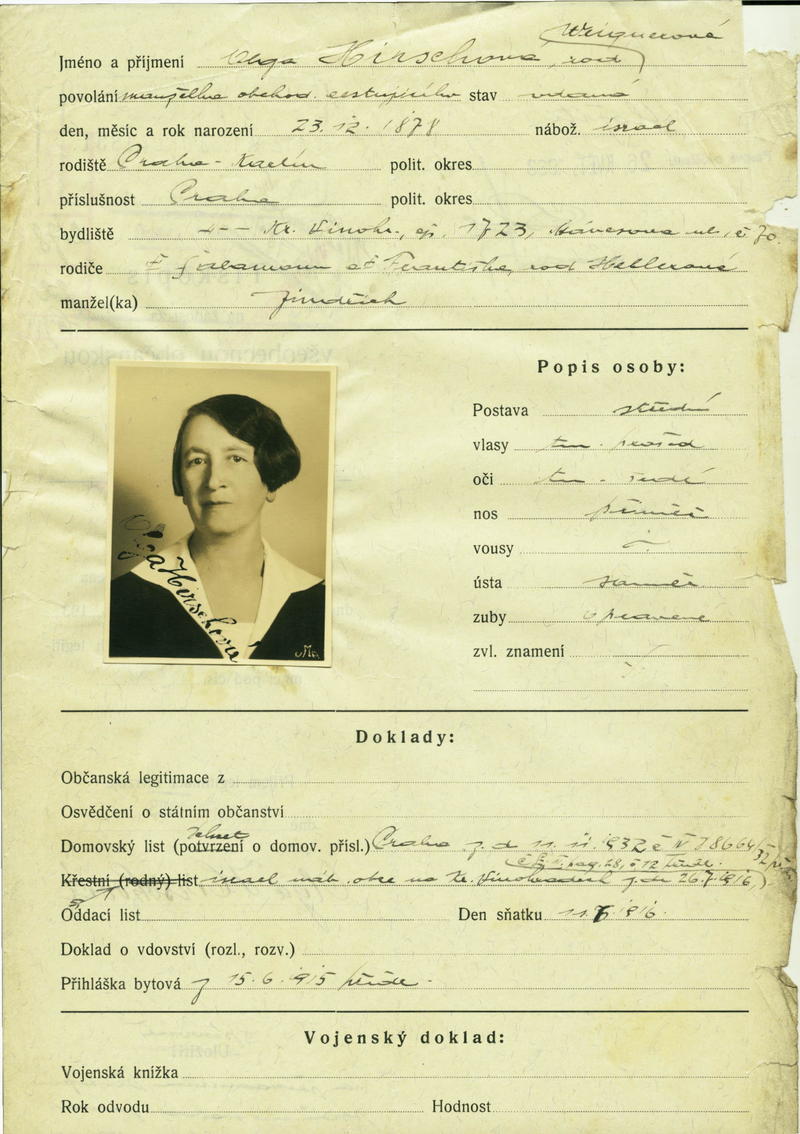 Jméno a příjmení Olga Hirschová, rod
povolání manželka obchod. cestujícího stav vdaná
den, měsíc a rok narození 23. 12. 1878 nábož. israel
rodiště Praha - Karlín polit. okres
příslušnost Praha polit. okres
bydliště Kr. Vinohr., čp. 1723, Mánesova ul., č 70.
rodiče † Salamoun a † Františka, rod Hellerové
manžel(ka) Jindřich
Popis osoby:
Postava střední
vlasy tm. prošed
oči tm - šedé
nos
vousy
ústa
zuby opravené
zvl. znamení
Olga Hirschová
Doklady:
Občanská legitimace z
Osvědčení o státním občanství
Domovský list (potvrzení o domov. přísl.) Praha z. d. 11. 1932 č
pag. 28, č 12
Křestní (rodný) list israel. náb. obce na Kr. Vinohradech z. dn 26.7.1916
Oddací list Den sňatku 1916.
Doklad o vdovství (rozl., rozv.)
Přihláška bytová z 15. 6. 1915
Vojenský doklad:
Vojenská knížka
Rok odvodu Hodnost